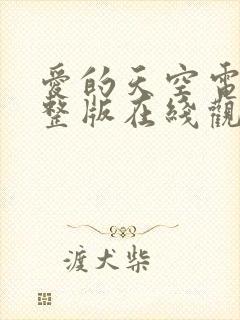 愛的天空電
整版在綫觀
渡犬柴